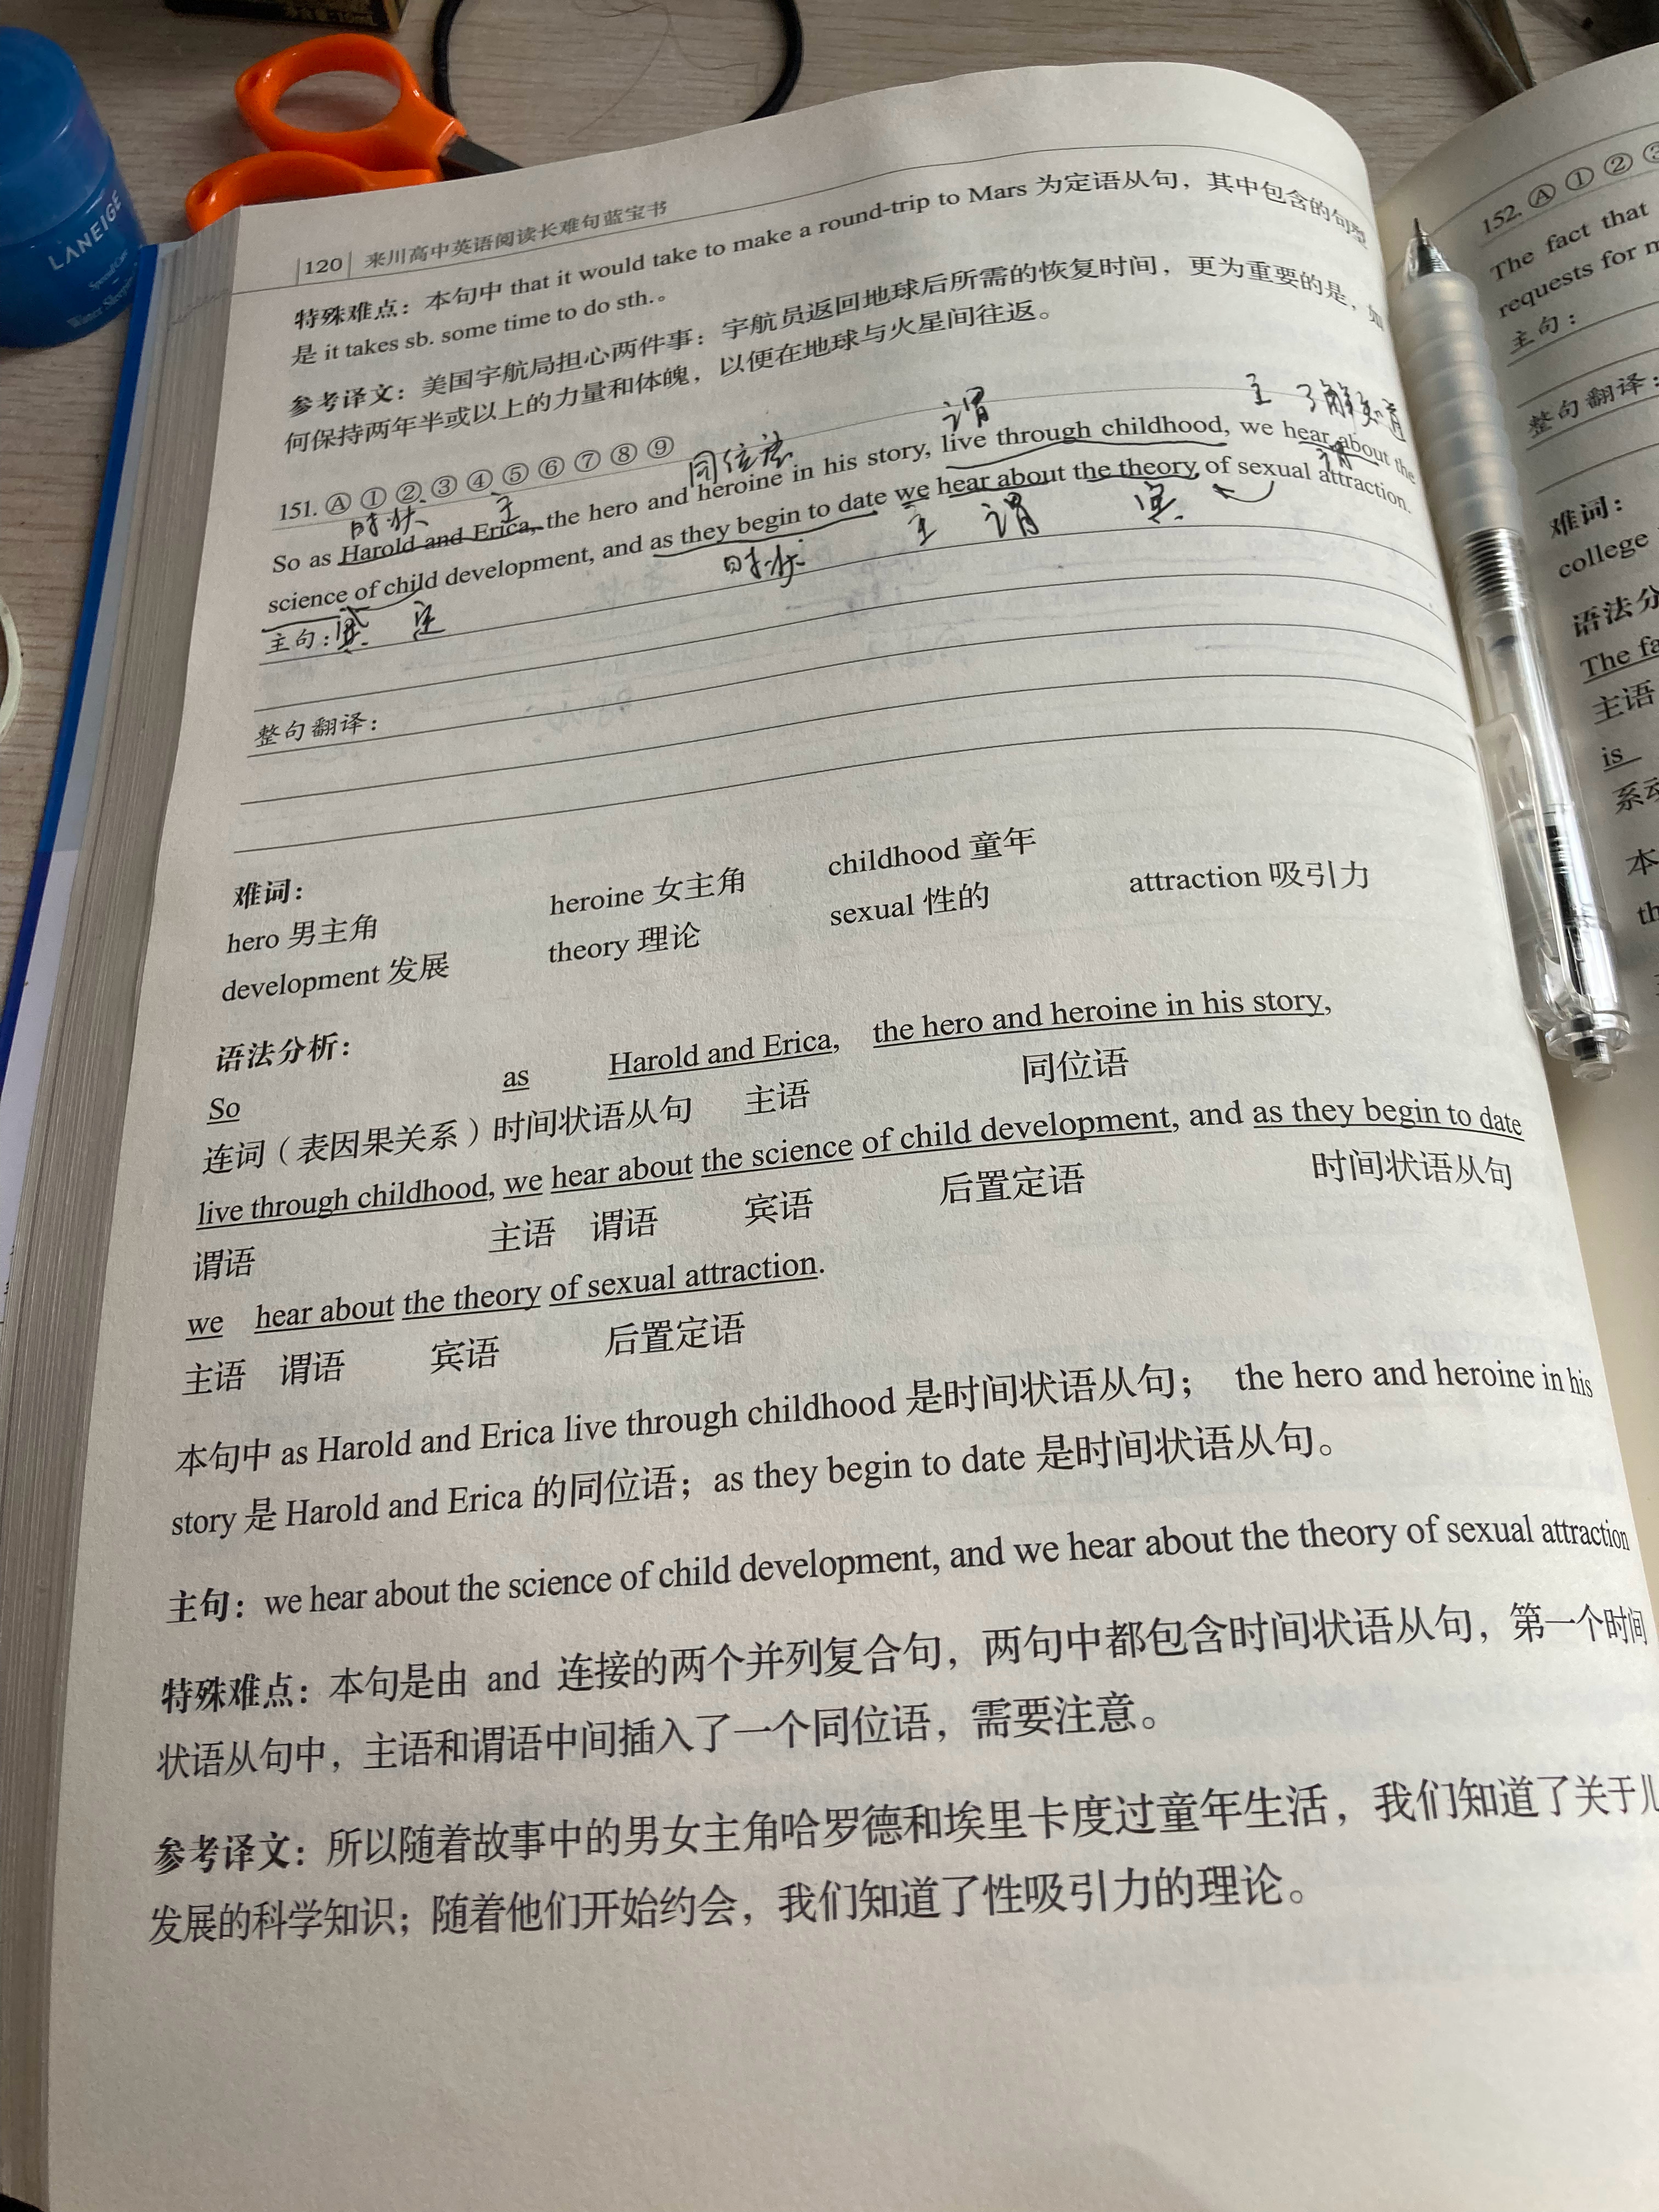 LANEIGE
|120| 来川高中英语阅读长难句蓝宝书
特殊难点：本句中 that it would take to make a round-trip to Mars 为定语从句，其中包含的句型
是 it takes sb. some time to do sth.。
参考译文：美国宇航局担心两件事：宇航员返回地球后所需的恢复时间，更为重要的是，如
何保持两年半或以上的力量和体魄，以便在地球与火星间往返。
151. Ⓐ ① ② ③ ④ ⑤ ⑥ ⑦ ⑧ ⑨
时状 主 同位语 谓 主 了解知道
So as Harold and Erica, the hero and heroine in his story, live through childhood, we hear about the
谓
science of child development, and as they begin to date we hear about the theory of sexual attraction.
宾 定 时状 主 谓 宾
主句：
整句翻译：
难词：
hero 男主角 heroine 女主角 childhood 童年
development 发展 theory 理论 sexual 性的 attraction 吸引力
语法分析：
So as Harold and Erica, the hero and heroine in his story,
连词（表因果关系）时间状语从句 主语 同位语
live through childhood, we hear about the science of child development, and as they begin to date
谓语 主语 谓语 宾语 后置定语 时间状语从句
we hear about the theory of sexual attraction.
主语 谓语 宾语 后置定语
本句中 as Harold and Erica live through childhood 是时间状语从句； the hero and heroine in his
story 是 Harold and Erica 的同位语；as they begin to date 是时间状语从句。
主句：we hear about the science of child development, and we hear about the theory of sexual attraction
特殊难点：本句是由 and 连接的两个并列复合句，两句中都包含时间状语从句，第一个时间
状语从句中，主语和谓语中间插入了一个同位语，需要注意。
参考译文：所以随着故事中的男女主角哈罗德和埃里卡度过童年生活，我们知道了关于儿
发展的科学知识；随着他们开始约会，我们知道了性吸引力的理论。
152. Ⓐ ① ② ③
The fact that
requests for
主句：
整句翻译：
难词：
college
语法分
The fa
主语
is
系动
本
th